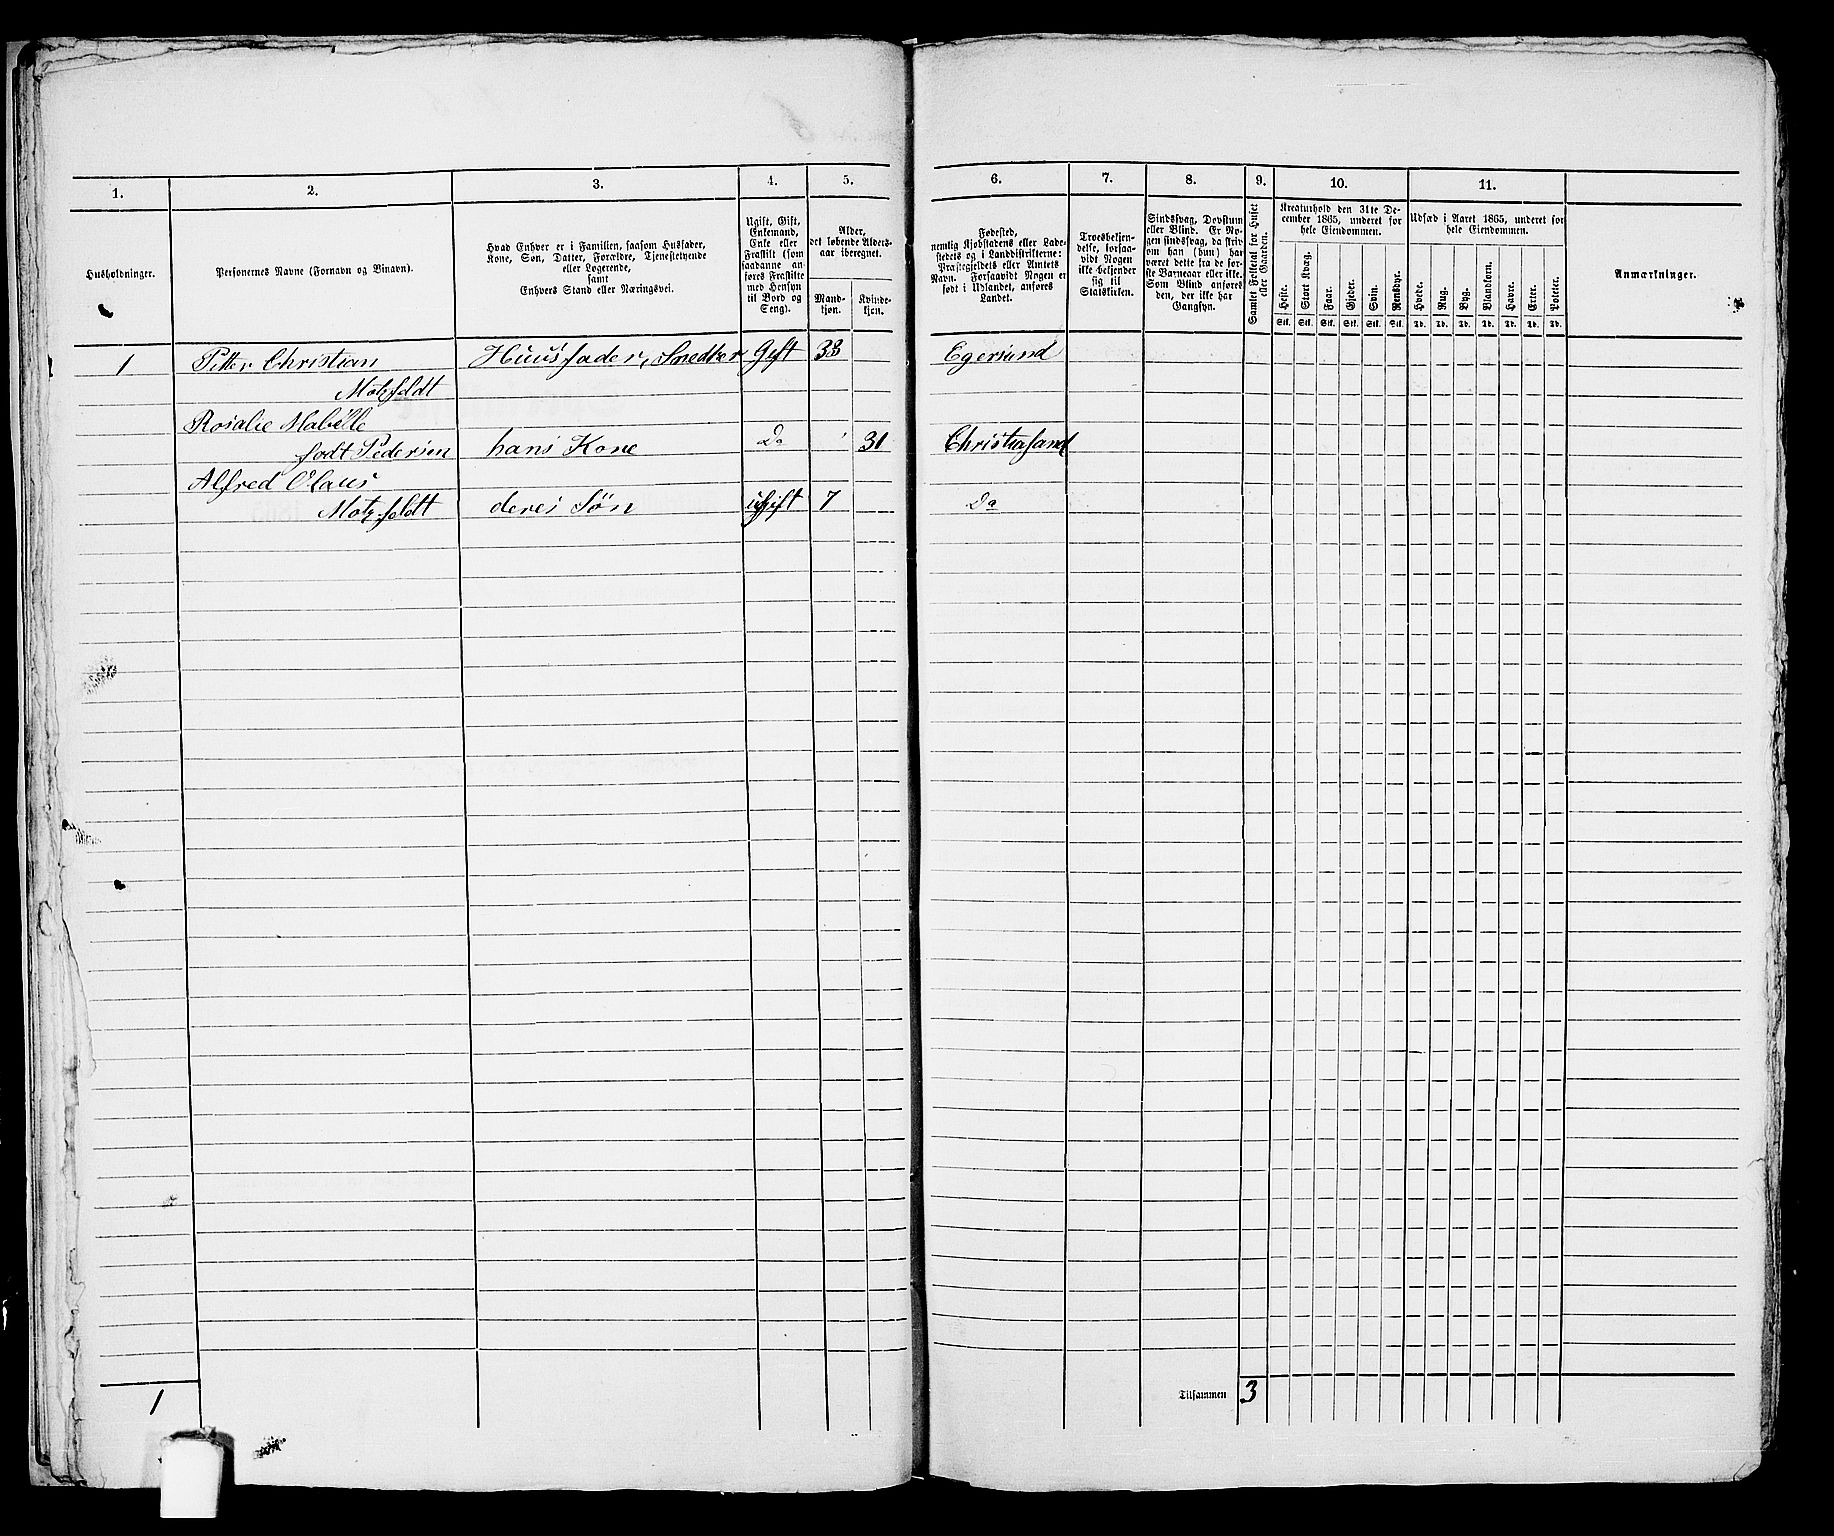 1. 2. 3. 4. 5. 6. 7. 8. 9. 10. 11.
Husholdninger.
Personernes Navne (Fornavn og Binavn).
Hvad Enhver er i Familien, saasom Husfader,
Kone, Søn, Datter, Forældre, Tjenestetyende
eller Logerende,
samt
Enhvers Stand eller Næringsvei.
Ugift, Gift,
Enkemand,
Enke eller
Fraskilt (som
saadanne an-
føres Fraskilte
med Hensyn
til Bord og
Seng).
Alder,
det løbende Alders-
aar iberegnet.
Mand-
kjøn.
Kvinde-
kjøn.
Fødested,
nemlig Kjøbstadens eller Lade-
stedets og i Landdistrikterne:
Præstegjeldets eller Amtets
Navn. Forsaavidt Nogen er
født i Udlandet, anføres
Landet.
Troesbekjen-
delse, forsaa-
vidt Nogen
ikke bekjender
sig til
Statskirken.
Sindssvag, Døvstum
eller Blind. Er No-
gen sindssvag, da skriv
om han (hun) har
været dette fra de før-
ste Barneaar eller ikke.
Som Blind anføres
den, der ikke har
Gangsyn.
Samlet Folketal for Huset
eller Gaarden.
Kreaturhold den 31te De-
cember 1865, underet for
hele Eiendommen.
Heste. Stort Kvæg. Faar. Gjeder. Svin. Rensdyr.
Stk. Stk. Stk. Stk. Stk. Stk.
Udsæd i Aaret 1865, underet for
hele Eiendommen.
Hvede. Rug. Byg. Blandkorn. Havre. Erter. Poteter.
Td. Td. Td. Td. Td. Td. Td.
Anmærkninger.
1 Pitter Christian Huusfader, Snedker Gift 33 Egersund
Motzfeldt
Rosalie Mabelle
født Pedersen hans Kone Do 31 Christiansand
Alfred Olaus
Motzfeldt deres Søn ugift 7 Do
1 Tilsammen 3